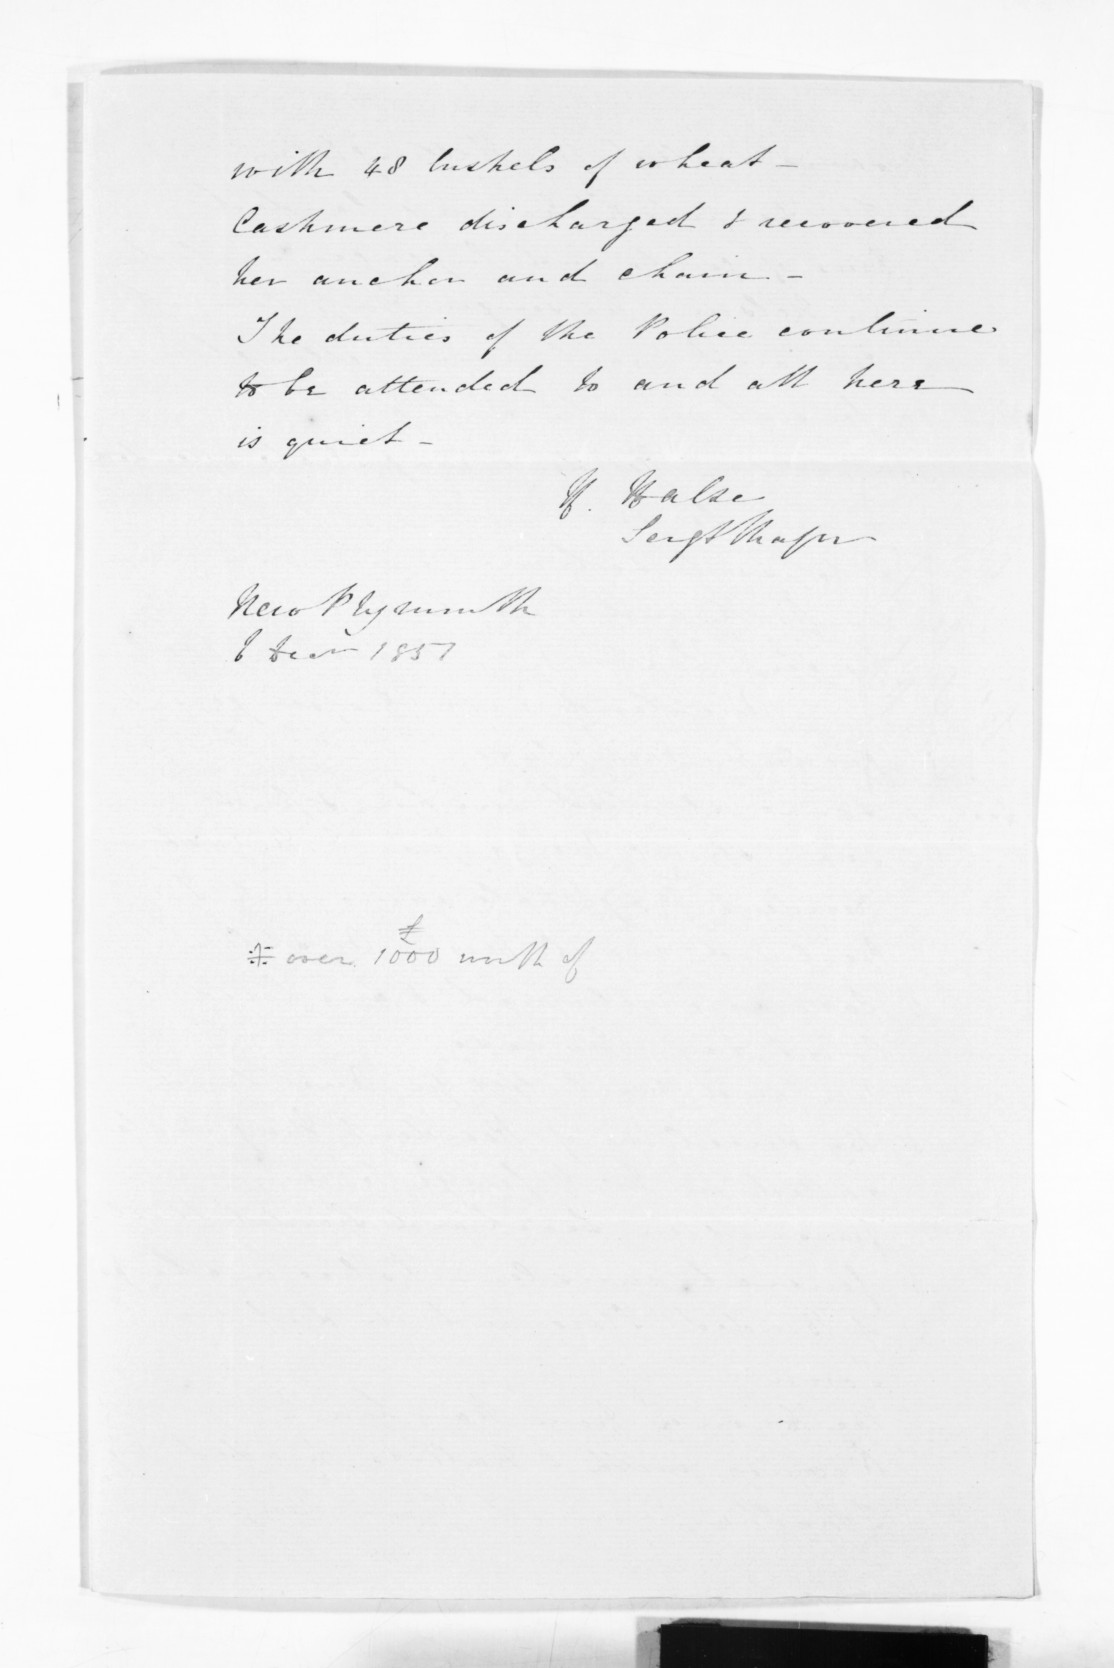 with 48 bushels of wheat –
Cashmere discharged & recovered
her anchor and chain –
The duties of the Police continue
to be attended to and all here
is quiet –
H. Halse
Sergt Major
New Plymouth
6 Decr 1851
over £1000 worth of